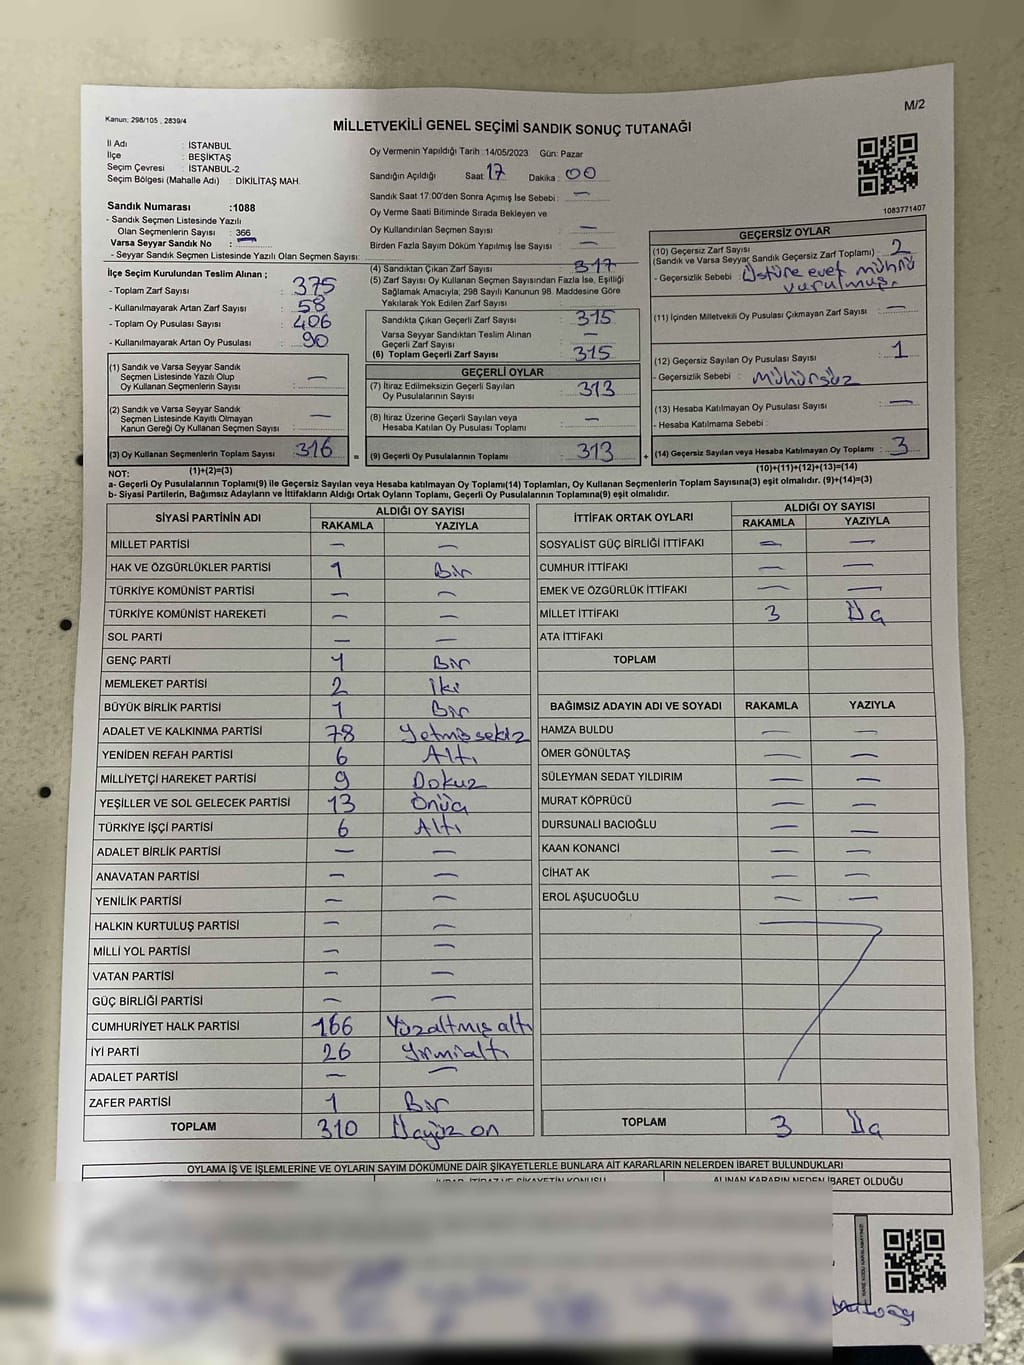 Kanun; 298/105 , 2839/4
M/2
MİLLETVEKİLİ GENEL SEÇİMİ SANDIK SONUÇ TUTANAĞI
İl Adı : İSTANBUL
İlçe : BEŞİKTAŞ
Seçim Çevresi : İSTANBUL-2
Seçim Bölgesi (Mahalle Adı) : DİKİLİTAŞ MAH.
Sandık Numarası :1088
- Sandık Seçmen Listesinde Yazılı
Olan Seçmenlerin Sayısı : 366
Varsa Seyyar Sandık No :
- Seyyar Sandık Seçmen Listesinde Yazılı Olan Seçmen Sayısı:
Oy Vermenin Yapıldığı Tarih :14/05/2023 Gün: Pazar
Sandığın Açıldığı Saat: 17 Dakika : 00
Sandık Saat 17:00'den Sonra Açımış İse Sebebi : —
Oy Verme Saati Bitiminde Sırada Bekleyen ve
Oy Kullandırılan Seçmen Sayısı : —
Birden Fazla Sayım Döküm Yapılmış İse Sayısı : —
1083771407
İlçe Seçim Kurulundan Teslim Alınan ;
- Toplam Zarf Sayısı : 375
- Kullanılmayarak Artan Zarf Sayısı : 58
- Toplam Oy Pusulası Sayısı : 406
- Kullanılmayarak Artan Oy Pusulası : 90
(1) Sandık ve Varsa Seyyar Sandık
Seçmen Listesinde Yazılı Olup
Oy Kullanan Seçmenlerin Sayısı : —
(2) Sandık ve Varsa Seyyar Sandık
Seçmen Listesinde Kayıtlı Olmayan
Kanun Gereği Oy Kullanan Seçmen Sayısı : —
(3) Oy Kullanan Seçmenlerin Toplam Sayısı : 316
(4) Sandıktan Çıkan Zarf Sayısı : 317
(5) Zarf Sayısı Oy Kullanan Seçmen Sayısından Fazla İse, Eşitliği
Sağlamak Amacıyla; 298 Sayılı Kanunun 98. Maddesine Göre
Yakılarak Yok Edilen Zarf Sayısı :
Sandıkta Çıkan Geçerli Zarf Sayısı : 315
Varsa Seyyar Sandıktan Teslim Alınan
Geçerli Zarf Sayısı : —
(6) Toplam Geçerli Zarf Sayısı : 315
GEÇERLİ OYLAR
(7) İtiraz Edilmeksizin Geçerli Sayılan
Oy Pusulalarının Sayısı : 313
(8) İtiraz Üzerine Geçerli Sayılan veya
Hesaba Katılan Oy Pusulası Toplamı : —
= (9) Geçerli Oy Pusulalarının Toplamı : 313
GEÇERSİZ OYLAR
(10) Geçersiz Zarf Sayısı
(Sandık ve Varsa Seyyar Sandık Geçersiz Zarf Toplamı) : 2
- Geçersizlik Sebebi : Üstüne evet mührü
vurulmuş.
(11) İçinden Milletvekili Oy Pusulası Çıkmayan Zarf Sayısı : —
(12) Geçersiz Sayılan Oy Pusulası Sayısı : 1
- Geçersizlik Sebebi : Mühürsüz
(13) Hesaba Katılmayan Oy Pusulası Sayısı : —
- Hesaba Katılmama Sebebi :
+ (14) Geçersiz Sayılan veya Hesaba Katılmayan Oy Toplamı : 3
NOT: (1)+(2)=(3) (10)+(11)+(12)+(13)=(14)
a- Geçerli Oy Pusulalarının Toplamı(9) ile Geçersiz Sayılan veya Hesaba Katılmayan Oy Toplamı(14) Toplamları, Oy Kullanan Seçmenlerin Toplam Sayısına(3) eşit olmalıdır. (9)+(14)=(3)
b- Siyasi Partilerin, Bağımsız Adayların ve İttifakların Aldığı Ortak Oyların Toplamı, Geçerli Oy Pusulalarının Toplamına(9) eşit olmalıdır.
SİYASİ PARTİNİN ADI ALDIĞI OY SAYISI
RAKAMLA YAZIYLA
MİLLET PARTİSİ — —
HAK VE ÖZGÜRLÜKLER PARTİSİ 1 Bir
TÜRKİYE KOMÜNİST PARTİSİ — —
TÜRKİYE KOMÜNİST HAREKETİ — —
SOL PARTİ — —
GENÇ PARTİ 1 Bir
MEMLEKET PARTİSİ 2 İki
BÜYÜK BİRLİK PARTİSİ 1 Bir
ADALET VE KALKINMA PARTİSİ 78 Yetmişsekiz
YENİDEN REFAH PARTİSİ 6 Altı
MİLLİYETÇİ HAREKET PARTİSİ 9 Dokuz
YEŞİLLER VE SOL GELECEK PARTİSİ 13 Onüç
TÜRKİYE İŞÇİ PARTİSİ 6 Altı
ADALET BİRLİK PARTİSİ — —
ANAVATAN PARTİSİ — —
YENİLİK PARTİSİ — —
HALKIN KURTULUŞ PARTİSİ — —
MİLLİ YOL PARTİSİ — —
VATAN PARTİSİ — —
GÜÇ BİRLİĞİ PARTİSİ — —
CUMHURİYET HALK PARTİSİ 166 Yüzaltmış altı
İYİ PARTİ 26 Yirmialtı
ADALET PARTİSİ — —
ZAFER PARTİSİ 1 Bir
TOPLAM 310 Üçyüz on
İTTİFAK ORTAK OYLARI ALDIĞI OY SAYISI
RAKAMLA YAZIYLA
SOSYALİST GÜÇ BİRLİĞİ İTTİFAKI — —
CUMHUR İTTİFAKI — —
EMEK VE ÖZGÜRLÜK İTTİFAKI — —
MİLLET İTTİFAKI 3 Üç
ATA İTTİFAKI
TOPLAM
BAĞIMSIZ ADAYIN ADI VE SOYADI RAKAMLA YAZIYLA
HAMZA BULDU — —
ÖMER GÖNÜLTAŞ — —
SÜLEYMAN SEDAT YILDIRIM — —
MURAT KÖPRÜCÜ — —
DURSUNALİ BACIOĞLU — —
KAAN KONANCİ — —
CİHAT AK — —
EROL AŞUCUOĞLU — —
TOPLAM 3 Üç
OYLAMA İŞ VE İŞLEMLERİNE VE OYLARIN SAYIM DÖKÜMÜNE DAİR ŞİKAYETLERLE BUNLARA AİT KARARLARIN NELERDEN İBARET BULUNDUKLARI
ALINAN KARARIN NEDEN İBARET OLDUĞU